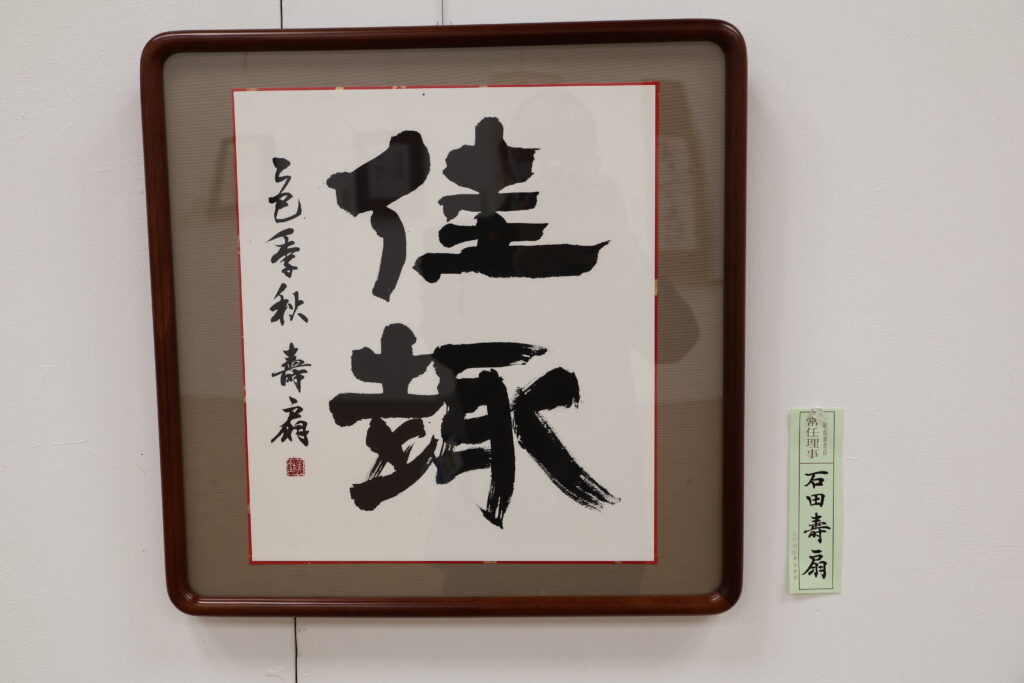 佳趣
乙巳季秋 壽扇
常任理事
石田壽扇